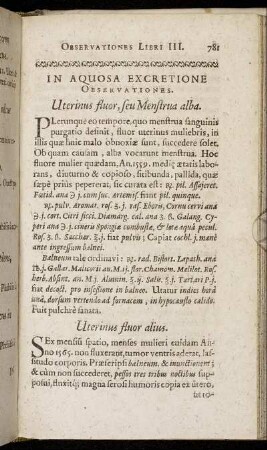 OBSERVATIONES LIBRI III. 781
IN AQUOSA EXCRETIONE
OBSERVATIONES.
Uterinus fluor, seu Menstrua alba.
PLerunque eo tempore, quo menstrua sanguinis
purgatio definit, fluor uterinus muliebris, in
illis quæ huic malo obnoxiæ sunt, succedere solet.
Ob quam causam, alba vocarunt menstrua. Hoc
fluore mulier quædam, An. 1559. mediæ ætatis labora-
ns, diuturno & copioso, sitibunda, pallida, quæ
sæpe prius pepererat, sic curata est: ꝶ. pil. Assajeret.
Fætid. ana ℈ j. cum suc. artemis. fiunt pil. quinque.
ꝶ. pulv. Aromat. ros. ʒ j. ras. Eboru, Cornu cervi ana
℈ j. cort. Citri sicci. Diamarg. cal. ana ʒ ß. Galang. Cy-
peri ana ℈ j. cineris Spongiæ combustæ, & lotæ aquâ pecul.
Ros. ʒ ß. Sacchar. ℥ j. fiat pulvis; Capiat cochl. j. manè
ante ingressum balnei.
Balneum tale ordinavi: ꝶ. rad. Bistort. Lapath. ana
lb j. Gallar. Malicorii an. M. ij. flor. Chamom. Melilot. Ros.
herb. Absint. an. M. j. Alumin. ℥ ij. Salis. ℥ j. Tartari P. j.
fiat decoct. pro insessione in balneo. Utatur indies horâ
unâ, dorsum vertendo ad fornacem, in hypocausto calido.
Fuit pulchrè sanata.
Uterinus fluor alius.
SEx mensis spatio, menses mulieri cuidam An-
no 1565. non fluxerant, tumor ventris aderat, las-
situdo corporis. Præscripsi balneum, & inunctionem;
& cùm non succederet, pessos tres tribus noctibus sup-
posui, fluxitq; magna serosi humoris copia ex utero,
ut to-